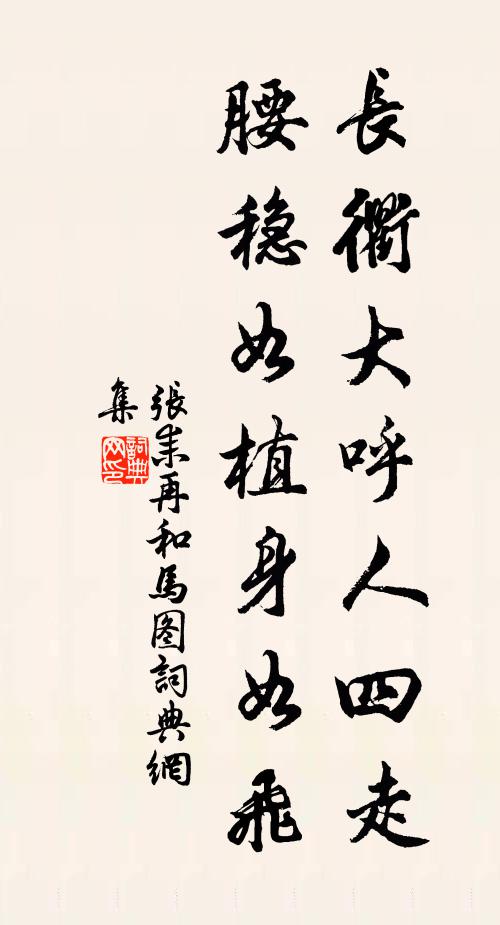 長衢大呼人四走
腰稳如植身如飛
張耒再和馬图詞典網
集
詞典网印